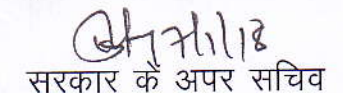 7/1/18
सरकार के अपर सचिव